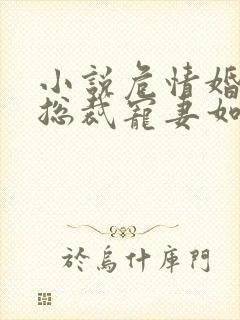 小說危情婚
總裁寵妻如
於烏什庫門